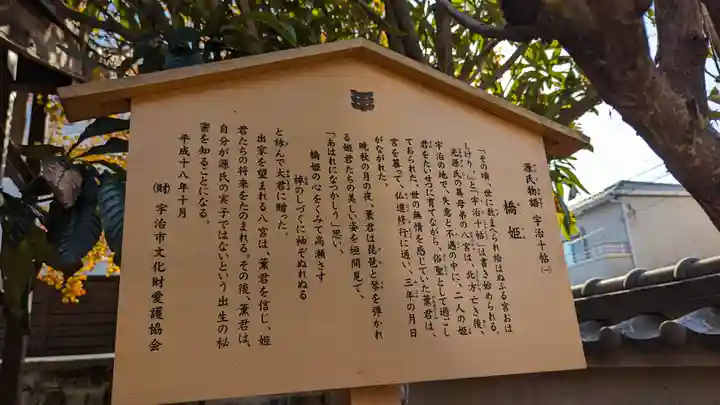 源氏物語 宇治十帖(一)
橋姫
「その頃、世に数まえられ給はぬふる宮おは
しけり。」と『宇治十帖』は書き始められる。
光源氏の異母弟の八宮は、北方亡き後、
宇治の地で、失意と不遇の中に、二人の姫
君をたいせつに育てながら、俗聖として過ごし
ておられた。世の無情を感じていた薫君は、
宮を慕って、仏道修行に通い、三年の月日
がながれた。
晩秋の月の夜、薫君は琵琶と箏を弾かれ
る姫君たちの美しい姿を垣間見て、
「あはれになつかしう」思い、
橋姫の心をくみて高瀬さす
棹のしづくに袖ぞぬれぬる
と詠んで大君に贈った。
出家を望まれる八宮は、薫君を信じ、姫
君たちの将来をたのまれる。その後、薫君は、
自分が源氏の実子ではないという出生の秘
密を知ることになる。
平成十八年十月
(財)宇治市文化財愛護協会